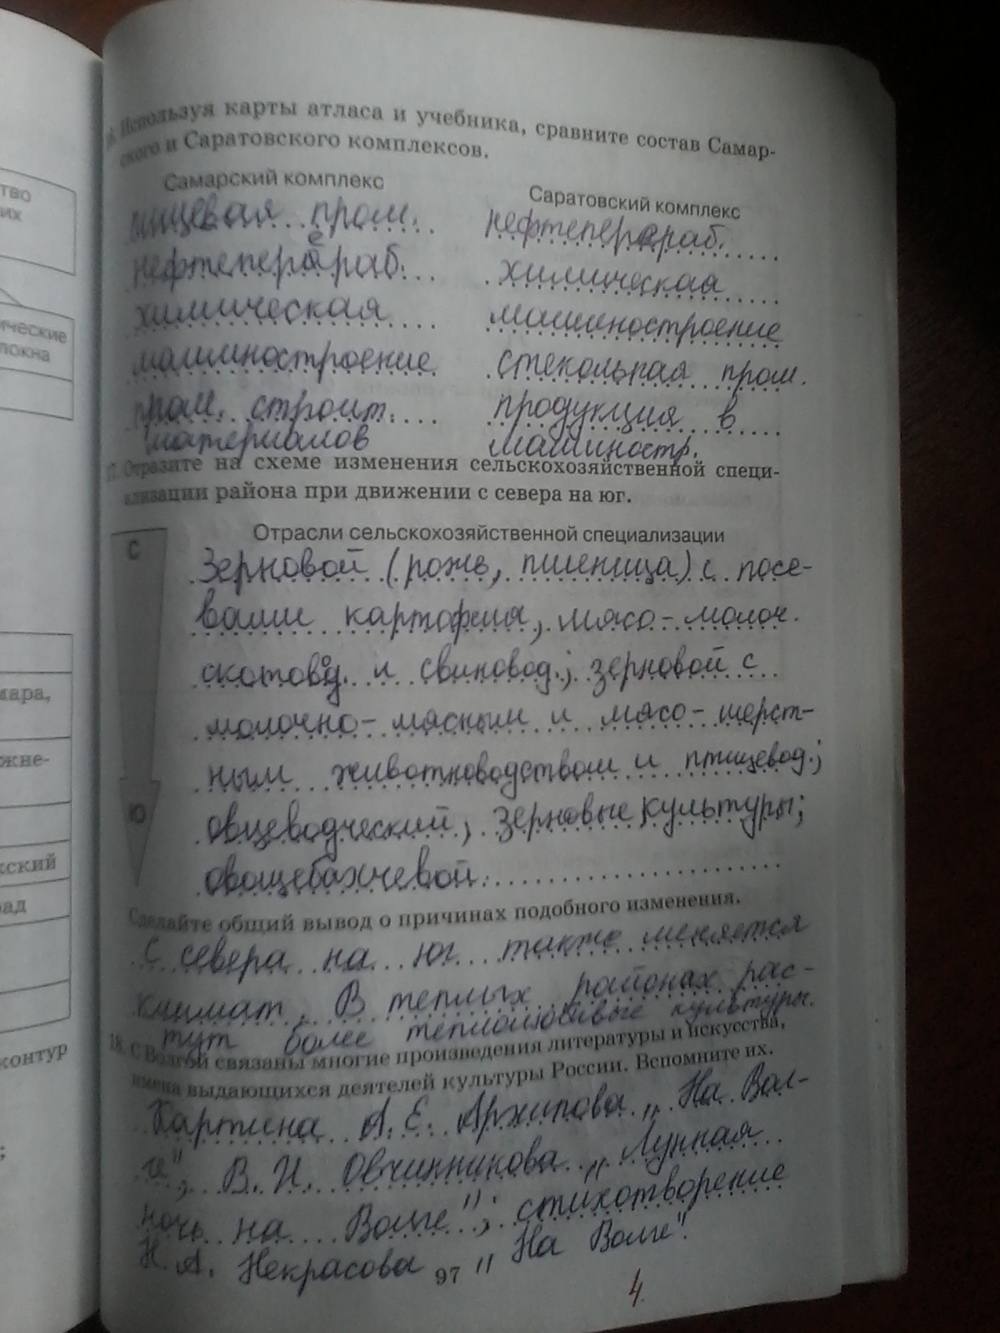 тво
их
ические
локна
мара,
жне-
жский
ад
контур
16. Используя карты атласа и учебника, сравните состав Самар-
ского и Саратовского комплексов.
Самарский комплекс
пищевая пром.
нефтеперераб.
химическая
машиностроение
пром. строит.
материалов
Саратовский комплекс
нефтеперераб.
химическая
машиностроение
стекольная пром.
продукция в
машиностр.
17. Отразите на схеме изменения сельскохозяйственной специ-
ализации района при движении с севера на юг.
С
Ю
Отрасли сельскохозяйственной специализации
Зерновой (рожь, пшеница) с посе-
вами картофеля, мясо-молоч.
скотовод. и свиновод.; зерновой с
молочно-мясным и мясо-шерст-
ным животноводством и птицевод.;
овцеводческий, зерновые культуры;
овощебахчевой.
Сделайте общий вывод о причинах подобного изменения.
С севера на юг также меняется
климат. В теплых районах рас-
тут более теплолюбивые культуры.
18. С Волгой связаны многие произведения литературы и искусства,
имена выдающихся деятелей культуры России. Вспомните их.
Картина А. Е. Архипова „На Вол-
ге", В. И. Овчинникова „Лунная
ночь на Волге"; стихотворение
Н. А. Некрасова „На Волге".
97
4